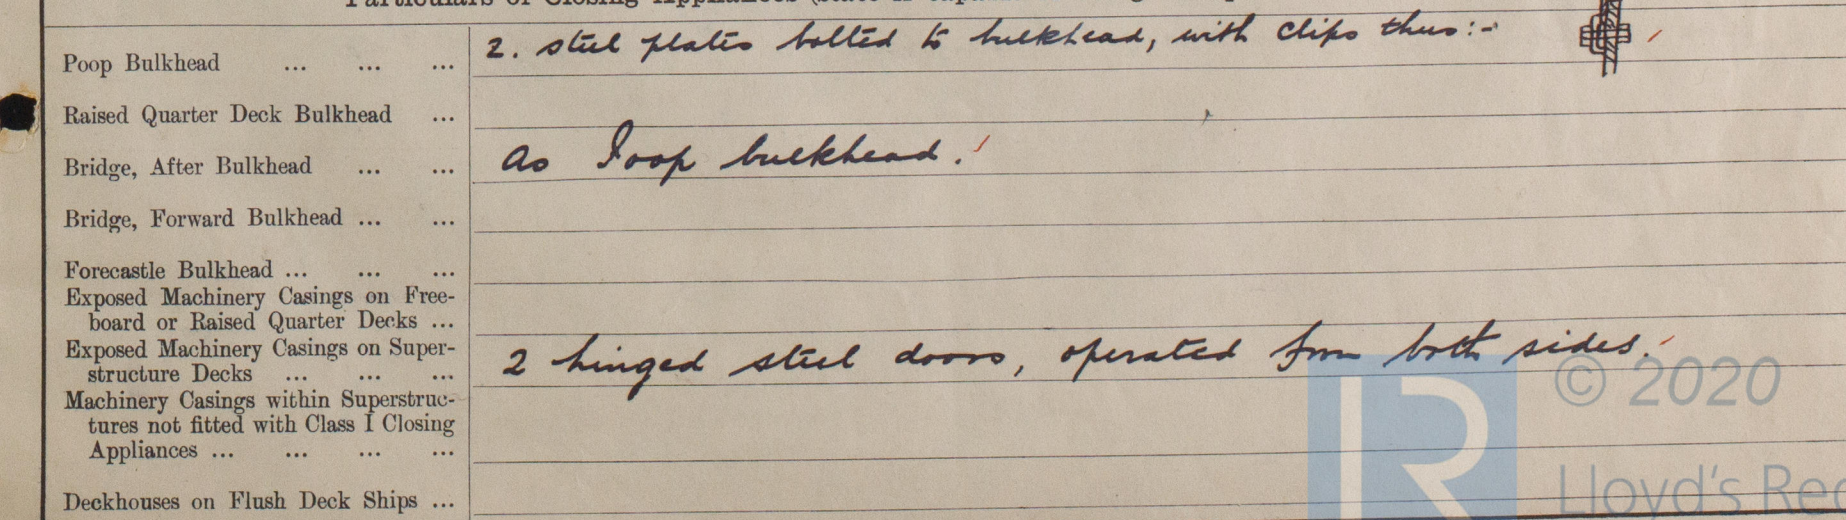 Particulars of Closing Appliances (state if capable
Poop Bulkhead ... ... ... 2. steel plates bolted to bulkhead, with clips thus:-
Raised Quarter Deck Bulkhead ...
Bridge, After Bulkhead ... ... As Poop bulkhead.
Bridge, Forward Bulkhead ... ...
Forecastle Bulkhead ... ... ...
Exposed Machinery Casings on Free-
board or Raised Quarter Decks ...
Exposed Machinery Casings on Super-
structure Decks ... ... ... 2 hinged steel doors, operated from both sides.
Machinery Casings within Superstruc-
tures not fitted with Class I Closing
Appliances ... ... ... ...
Deckhouses on Flush Deck Ships ...
© 2020
Lloyd's Reg